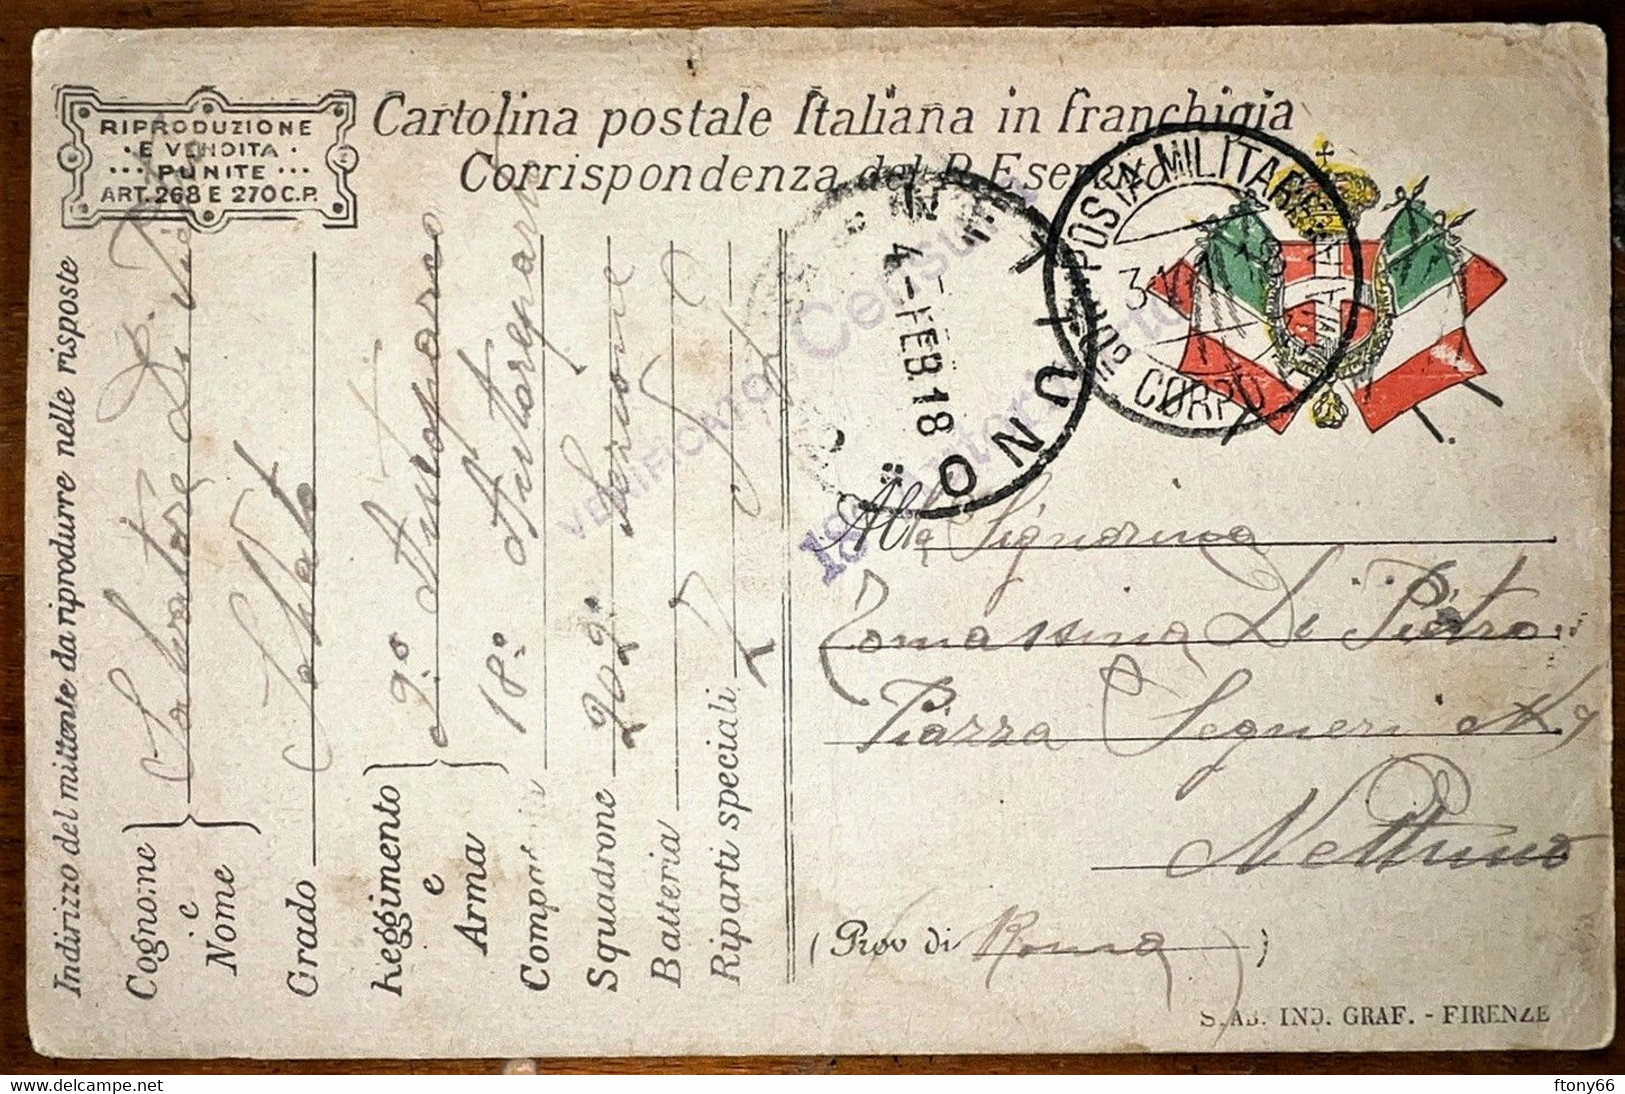 RIPRODUZIONE
· E VENDITA ·
··· PUNITE ···
ART. 268 E 270 C.P.
Cartolina postale Italiana in franchigia
Corrispondenza del R. Esercito
Indirizzo del mittente da riprodurre nelle risposte
Cognome e Nome
Salvatore Di
Grado
Soldato
Reggimento e Arma
2º Autoparco
18º Autoreparto
Compagnia
Squadrone
292º Sezione
Batteria
Riparti speciali
VERIFICATO
Censura
NETTUNO
4 - FEB. 18
POSTA MILITARE
CORPO
Alla Signorina
Tomassina Di Pietro
Piazza Segneri N 9
Nettuno
(Prov di Roma)
S. AB. IND. GRAF. - FIRENZE
delcampe.net
ftony66